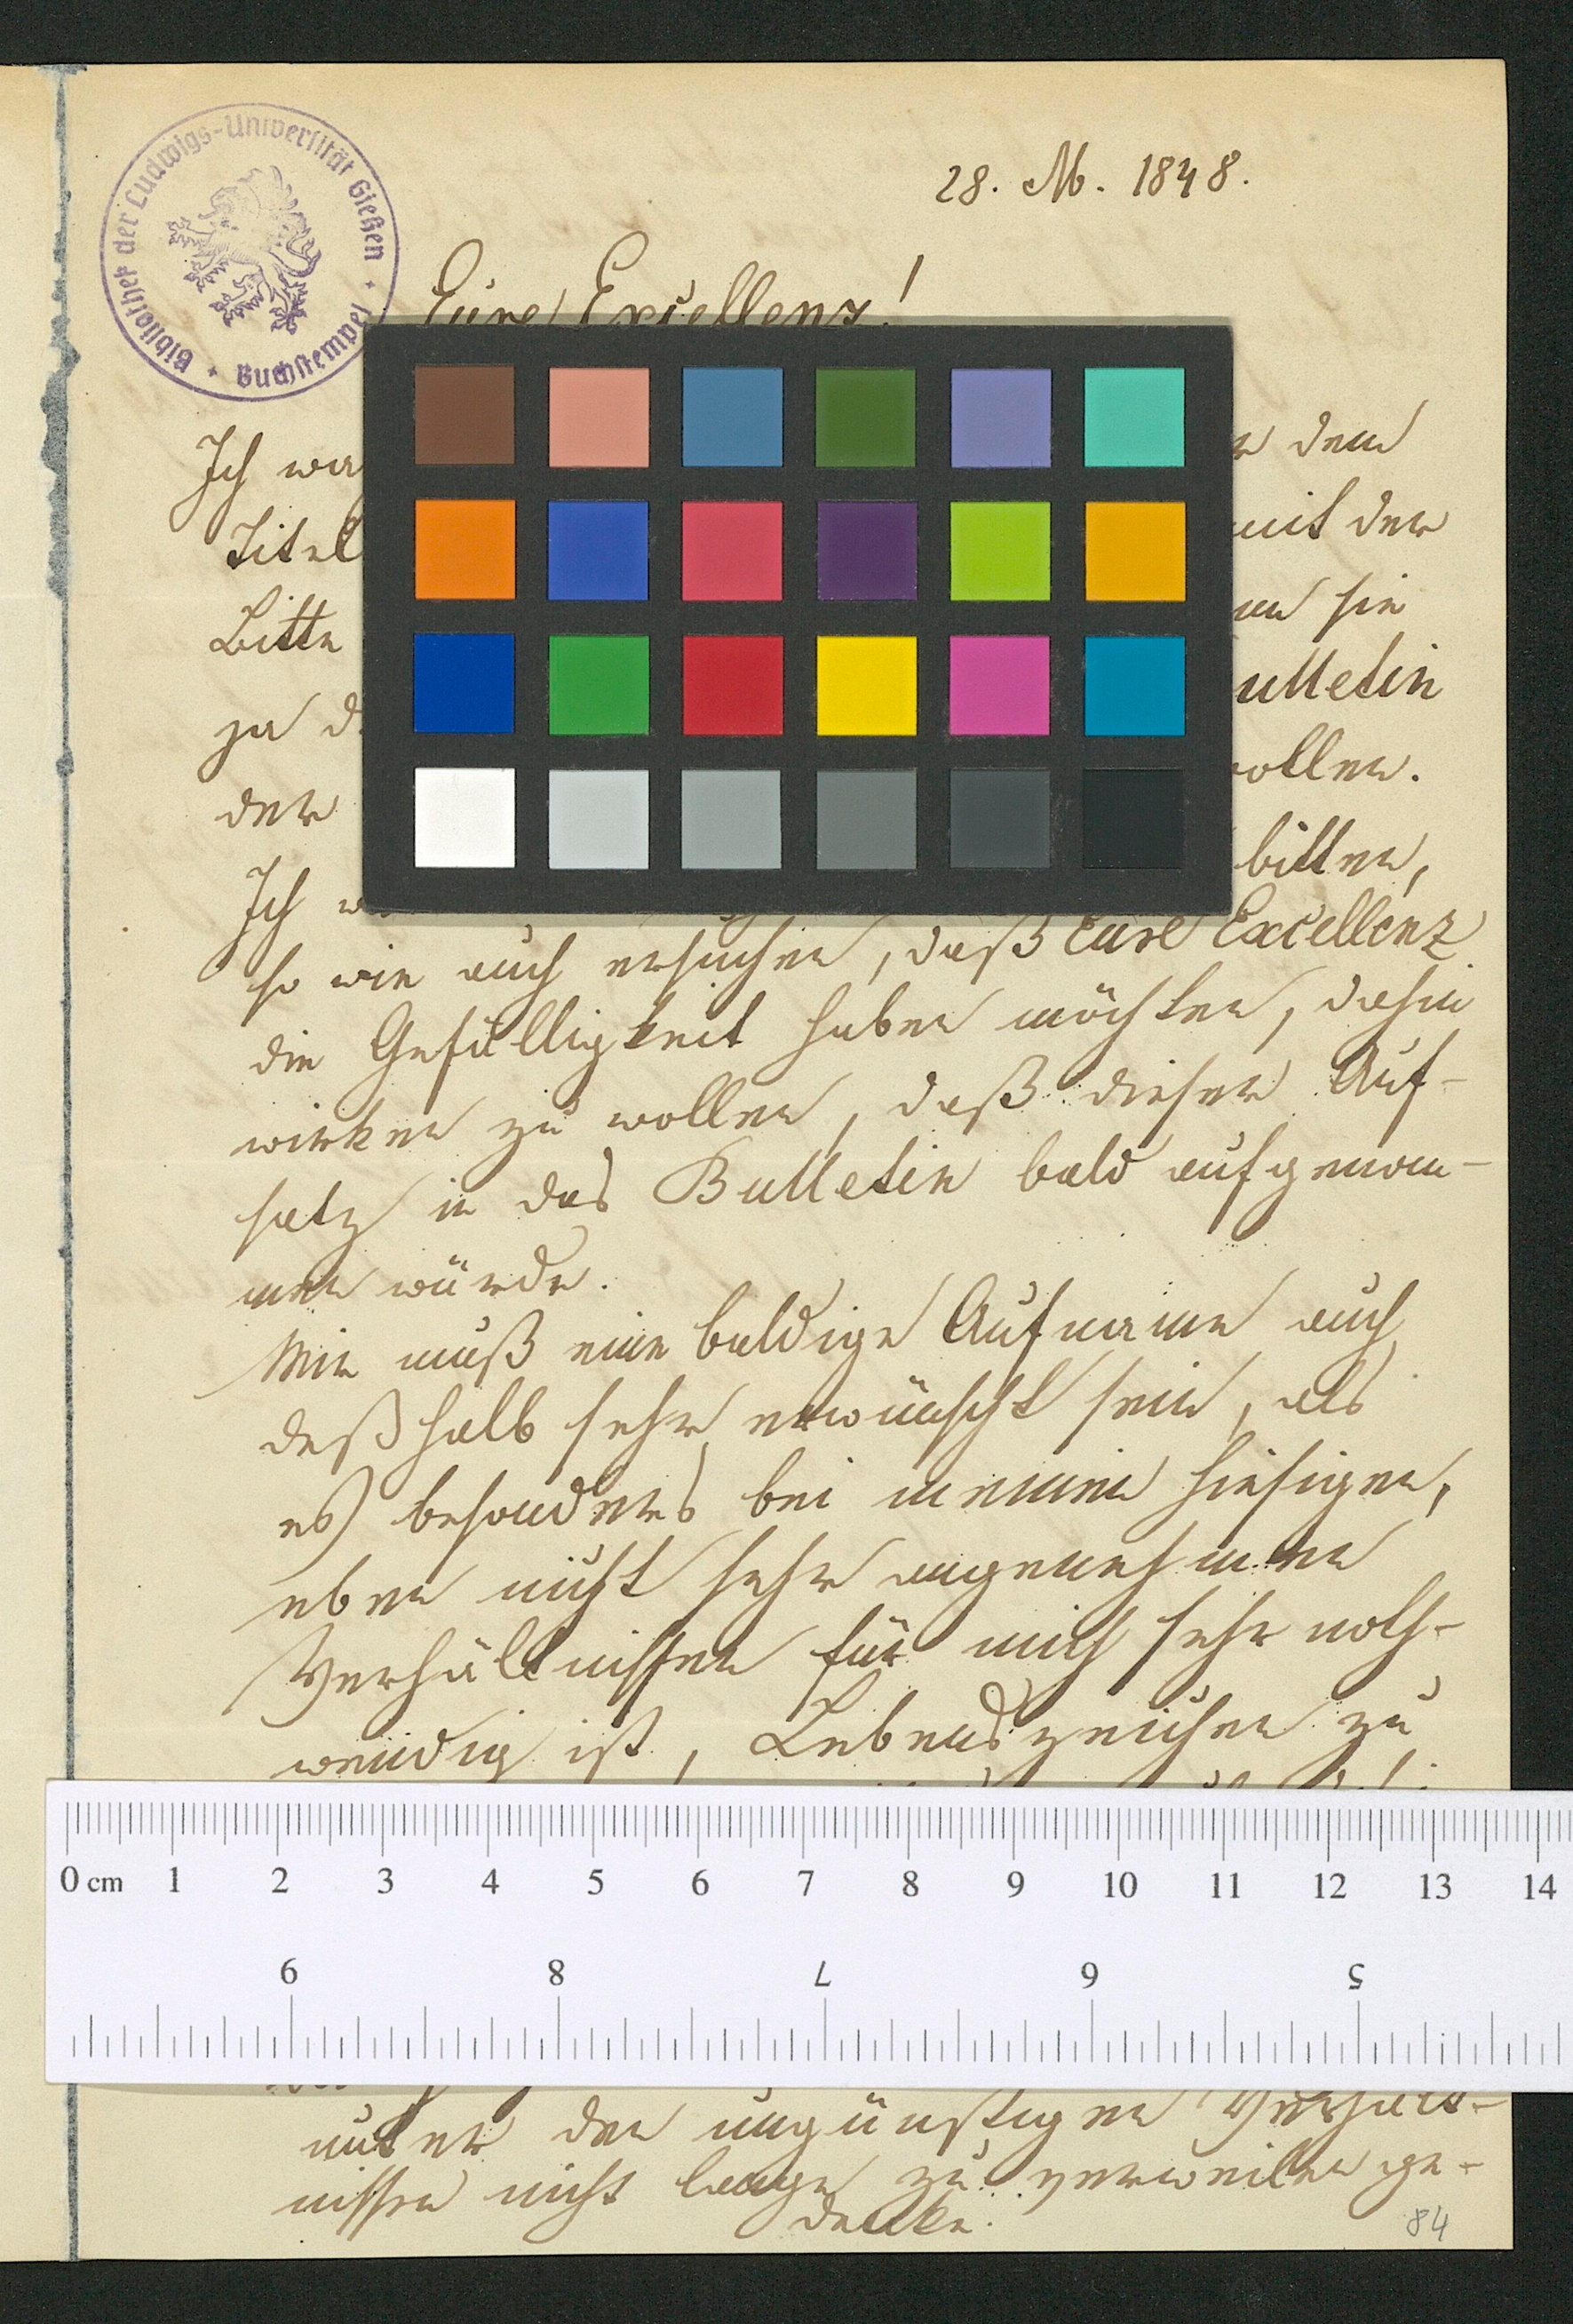 Bibliothek der Ludwigs-Universität Gießen
Buchstempel
28. M. 1848.
Eure Excellenz!
Ich den
Titel mit der
Bitte sie
zu
der wollen.
Ich bitten,
so wie auch ersuchen, daß Eure Excellenz
die Gefälligkeit haben möchten, dahin
wirken zu wollen, daß dieser Auf-
satz in das Bulletin bald aufgenom-
men würde.
Mir muß eine baldige Aufname auch
deßhalb sehr erwünscht sein, als
es besonders bei meinen hiesigen,
eben nicht sehr angenehmen
Verhältnissen für mich sehr noth-
wendig ist, Lebenszeichen zu
0 cm 1 2 3 4 5 6 7 8 9 10 11 12 13 14
9 8 7 6 5
unter den ungünstigen Verhält-
nissen nicht lange zu verweilen ge-
denke.
84